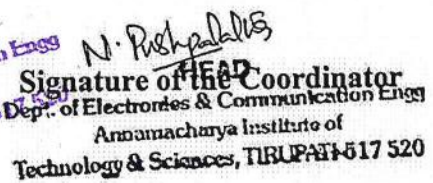 n Engg
N. Pushpalatha
HEAD
Signature of the Coordinator
Dept. of Electronics & Communication Engg
Annamacharya Institute of
Technology & Sciences, TIRUPATI-517 520